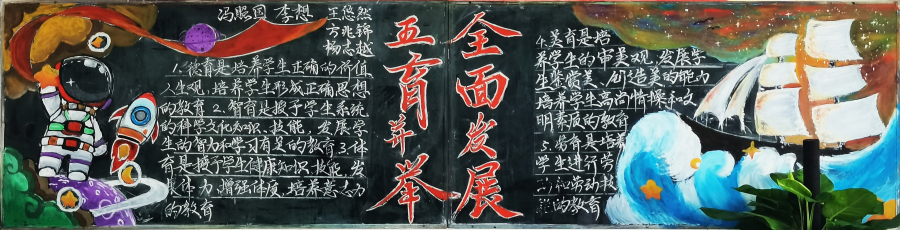 冯照国 李想 王悠然
方兆锦
杨志越
1.德育是培养学生正确的价值
人生观,培养学生形成正确思想
的教育 2.智育是授予学生系统
的科学文化知识、技能,发展学
生的智力和学习有足的教育 3.体
育是授予学生健康知识、技能,发
展体力,增强体质,培养意志力
的教育
五育并举
全面发展
4.美育是培
养学生的审美观,发展学
生鉴赏美、创造美的能力
培养学生高尚情操和文
明素质的教育
5.劳育是培养
学生进行劳
动和劳动技
能的教育